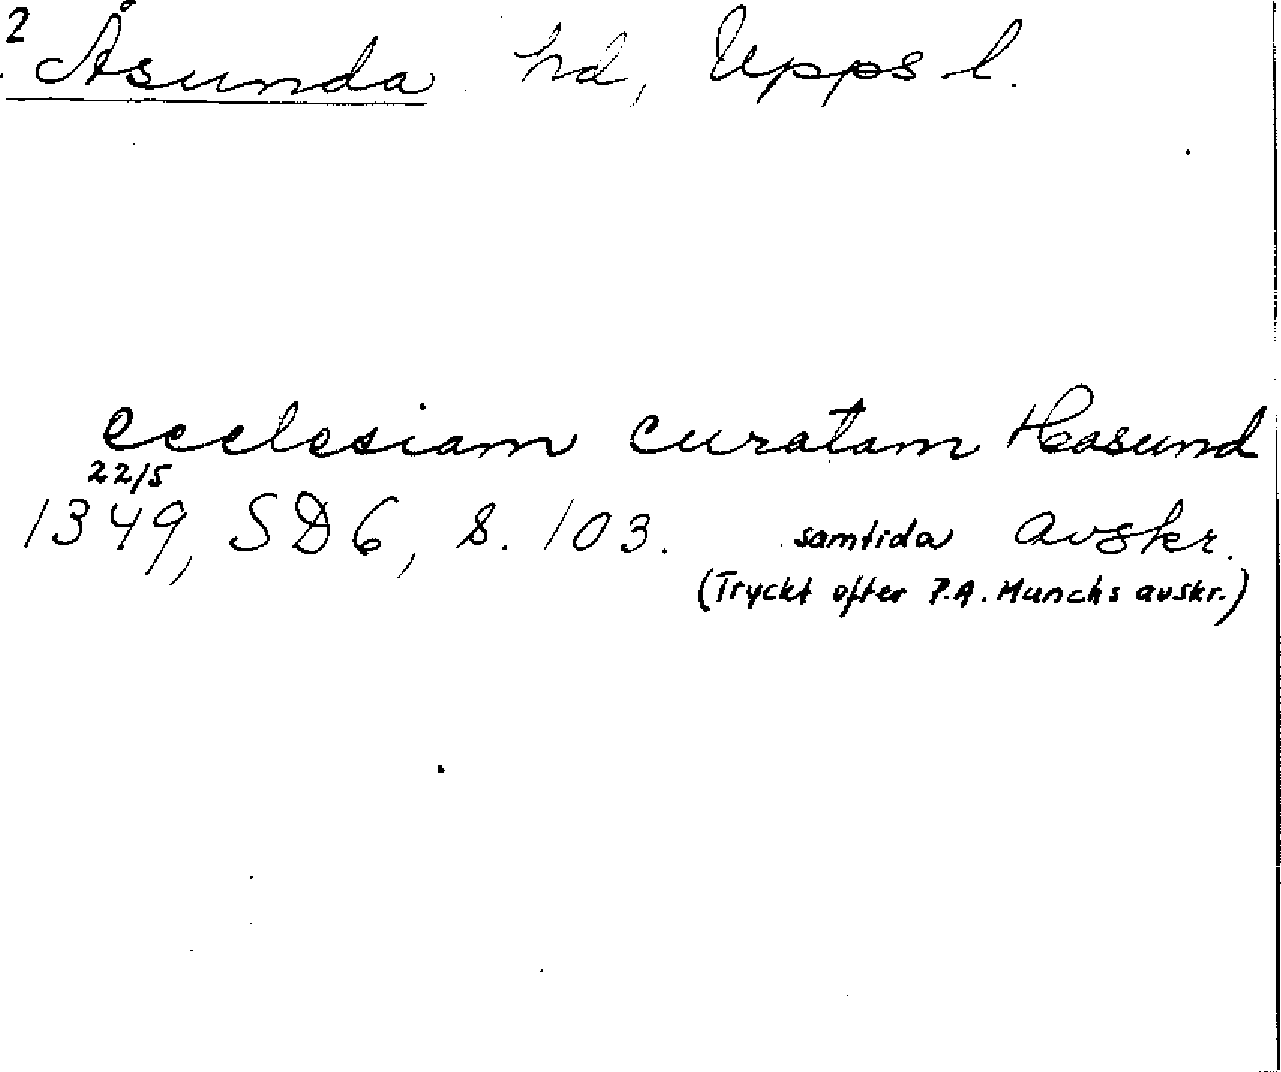 2
Åsunda hd, Upps l.
ecclesiam curatam Hasund
22/5
1349, SD6, s. 103. samtida avskr.
(Tryckt efter P.A. Munchs avskr.)